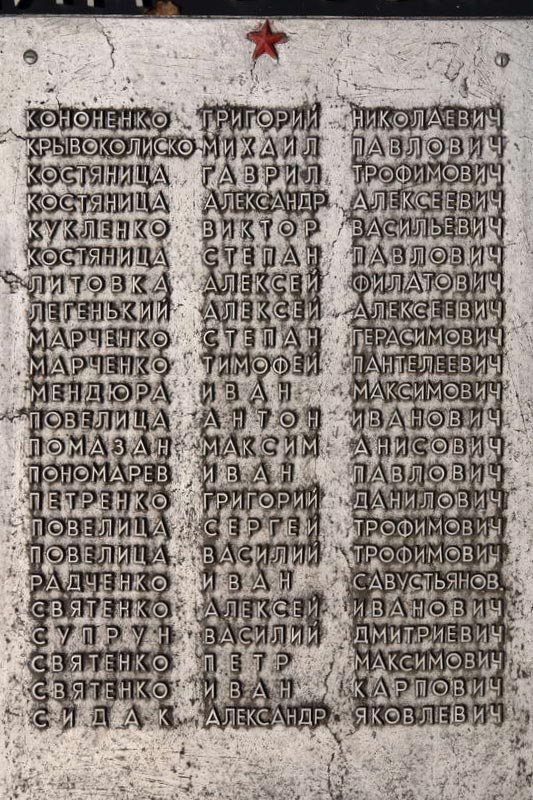 КОНОНЕНКО ГРИГОРИЙ НИКОЛАЕВИЧ
КРЫВОКОЛИСКО МИХАИЛ ПАВЛОВИЧ
КОСТЯНИЦА ГАВРИЛ ТРОФИМОВИЧ
КОСТЯНИЦА АЛЕКСАНДР АЛЕКСЕЕВИЧ
КУКЛЕНКО ВИКТОР ВАСИЛЬЕВИЧ
КОСТЯНИЦА СТЕПАН ПАВЛОВИЧ
ЛИТОВКА АЛЕКСЕЙ ФИЛАТОВИЧ
ЛЕГЕНЬКИЙ АЛЕКСЕЙ АЛЕКСЕЕВИЧ
МАРЧЕНКО СТЕПАН ГЕРАСИМОВИЧ
МАРЧЕНКО ТИМОФЕЙ ПАНТЕЛЕЕВИЧ
МЕНДЮРА ИВАН МАКСИМОВИЧ
ПОВЕЛИЦА АНТОН ИВАНОВИЧ
ПОМАЗАН МАКСИМ АНИСОВИЧ
ПОНОМАРЕВ ИВАН ПАВЛОВИЧ
ПЕТРЕНКО ГРИГОРИЙ ДАНИЛОВИЧ
ПОВЕЛИЦА СЕРГЕЙ ТРОФИМОВИЧ
ПОВЕЛИЦА ВАСИЛИЙ ТРОФИМОВИЧ
РАДЧЕНКО ИВАН САВУСТЬЯНОВ.
СВЯТЕНКО АЛЕКСЕЙ ИВАНОВИЧ
СУПРУН ВАСИЛИЙ ДМИТРИЕВИЧ
СВЯТЕНКО ПЕТР МАКСИМОВИЧ
СВЯТЕНКО ИВАН КАРПОВИЧ
СИДАК АЛЕКСАНДР ЯКОВЛЕВИЧ